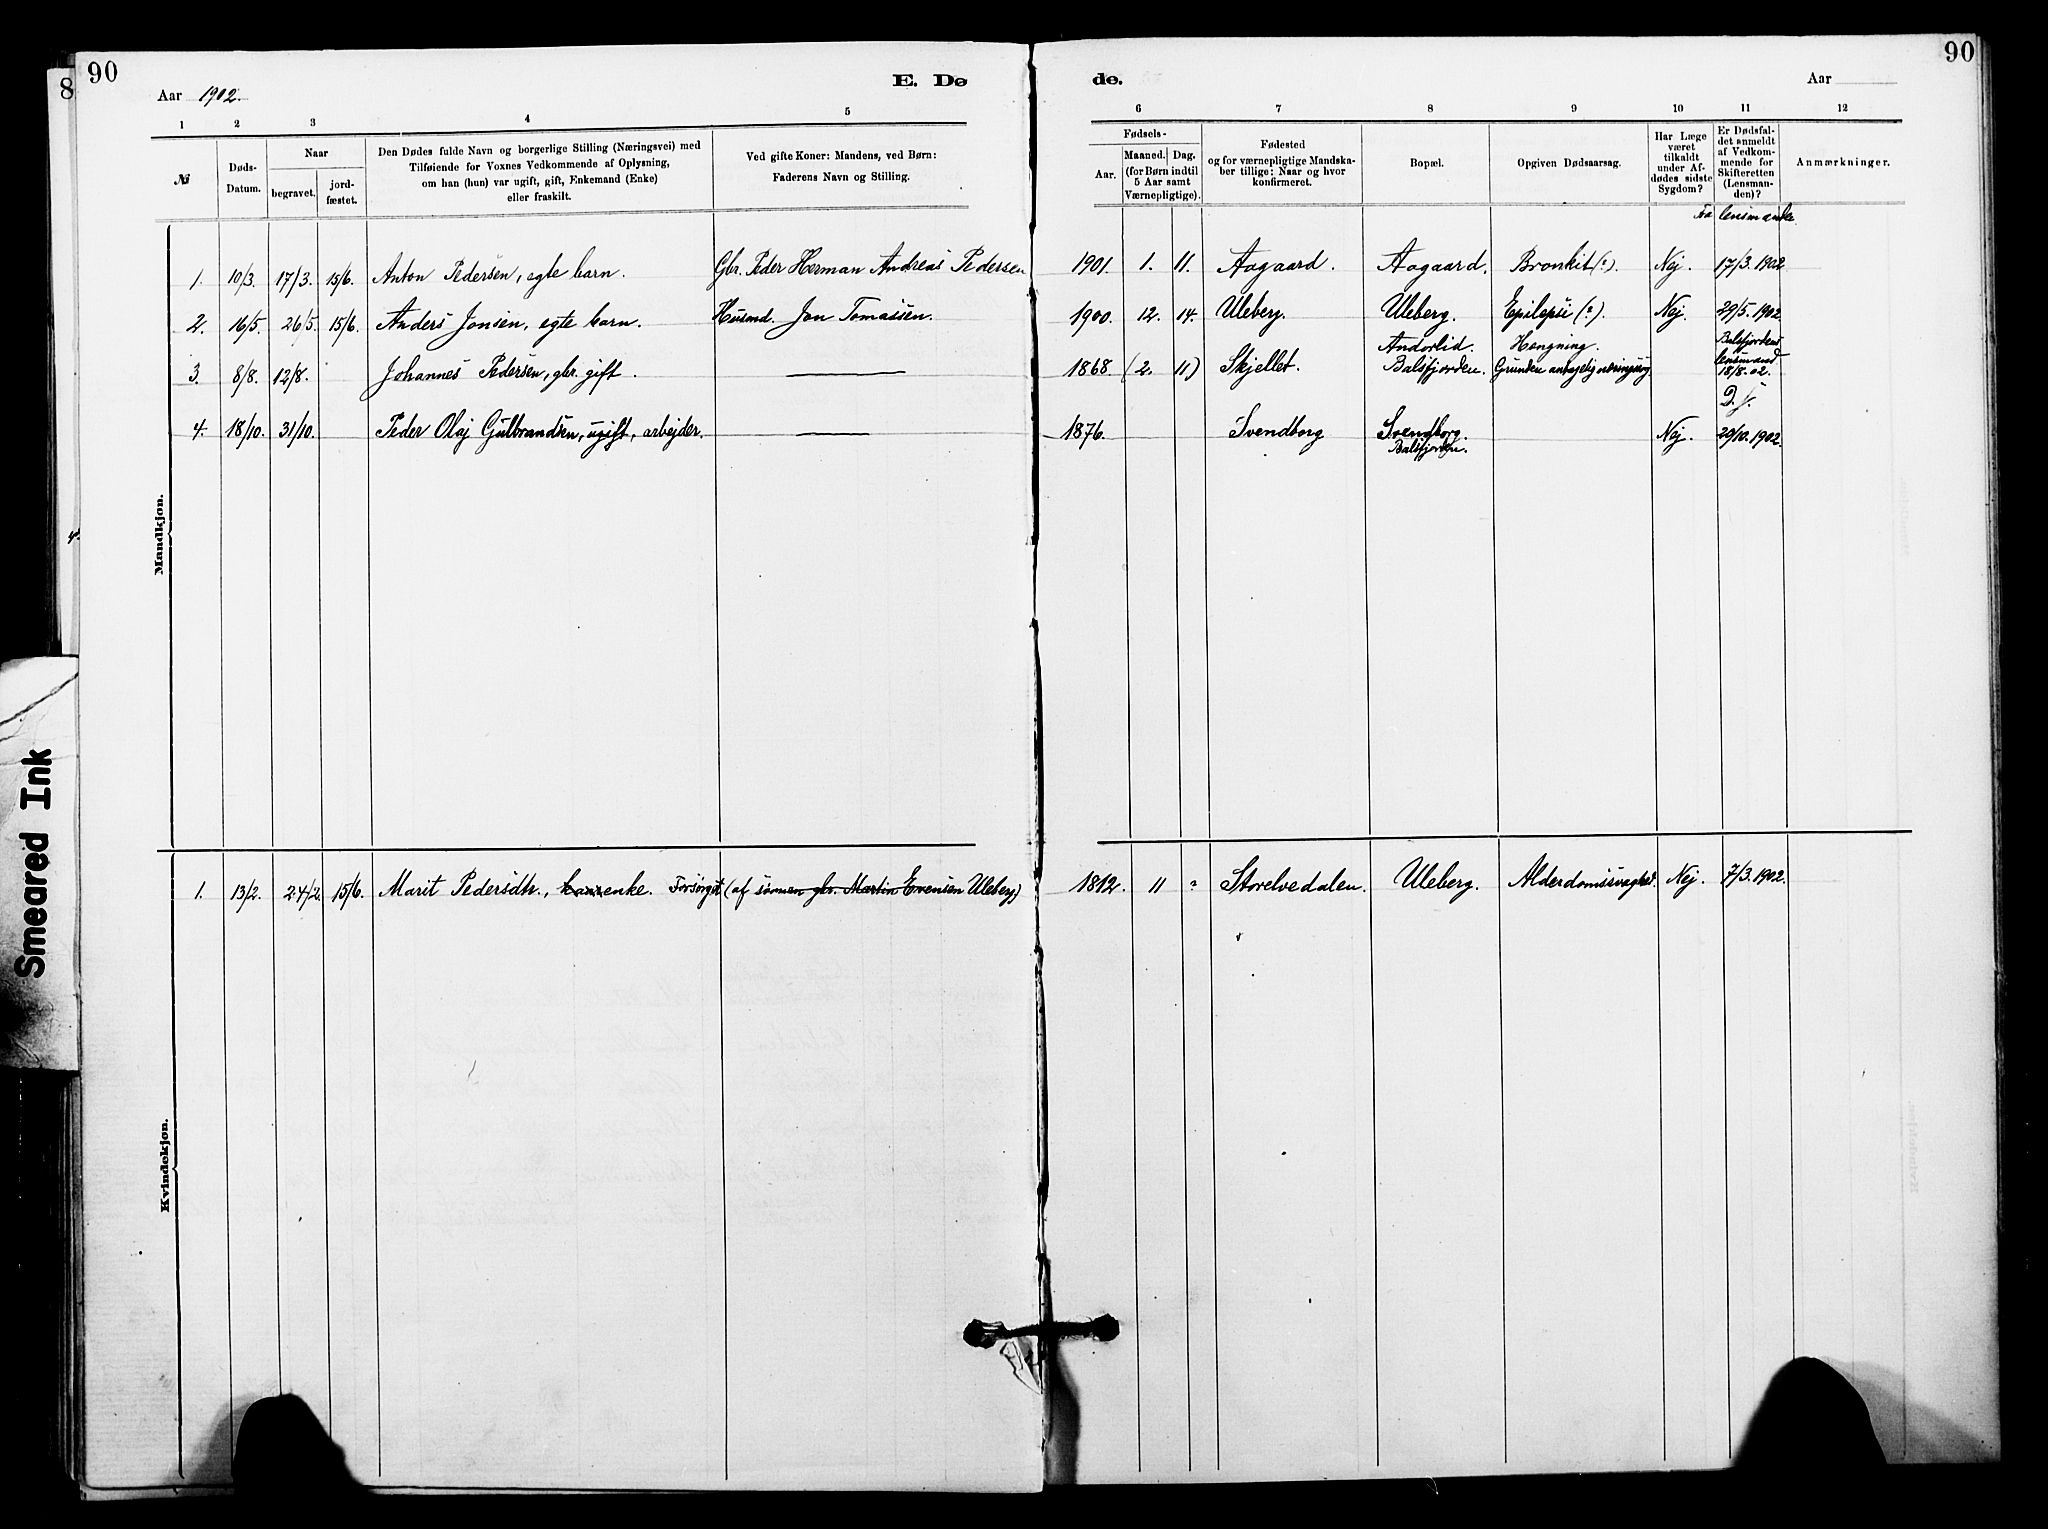 90
90
8
Aar 1902.
E. Dø
de.
Aar
1 2 3 4 5
6 7 8 9 10 11 12
№
Døds-
Datum.
Naar
begravet.
jord-
fæstet.
Den Dødes fulde Navn og borgerlige Stilling (Næringsvei) med
Tilføiende for Voxnes Vedkommende af Oplysning,
om han (hun) var ugift, gift, Enkemand (Enke)
eller fraskilt.
Ved gifte Koner: Mandens, ved Børn:
Faderens Navn og Stilling.
Fødsels-
Aar.
Maaned. Dag.
(for Børn indtil
5 Aar samt
Værnepligtige).
Fødested
og for værnepligtige Mandska-
ber tillige: Naar og hvor
konfirmeret.
Bopæl.
Opgiven Dødsaarsag.
Har Læge
været
tilkaldt
under Af-
dødes sidste
Sygdom?
Er Dødsfal-
det anmeldt
af Vedkom-
mende for
Skifteretten
(Lensman-
den)?
Anmærkninger.
Mandkjøn.
1. 10/3. 17/3. 15/6. Anton Pedersen, egte barn. Gbr. Peder Herman Andreas Pedersen 1901. 1. 11. Aagaard. Aagaard. Bronkit (?). Nej. 17/3. 1902
2. 16/5. 26/5. 15/6. Anders Jonsen, egte barn. Husmd. Jon Tomassen. 1900. 12. 14. Uleberg. Uleberg. Epilepsi (?). Nej. 29/5. 1902
3. 8/8. 12/8. Johannes Pedersen, gbr. gift. 1868 (2. 11) Skjellet. Andorlid. Balsfjorden. Hængning. Grunden antagelig næringssorg. Balsfjordens lensmand 18/8. 02.
4. 18/10. 31/10. Peder Olaj Gulbrandsen, ugift, arbejder. 1876. Svendborg Svendborg. Balsfjorden. Nej. D. s. 20/10. 1902.
Kvindekjøn.
1. 13/2. 24/2. 15/6. Marit Pedersdtr., enke. Forsørget (af sønnen gbr. Martin Evensen Uleberg) 1812. 11 ? Storelvedalen. Uleberg. Alderdomssvaghed. Nej. 7/3. 1902.
Smeared Ink